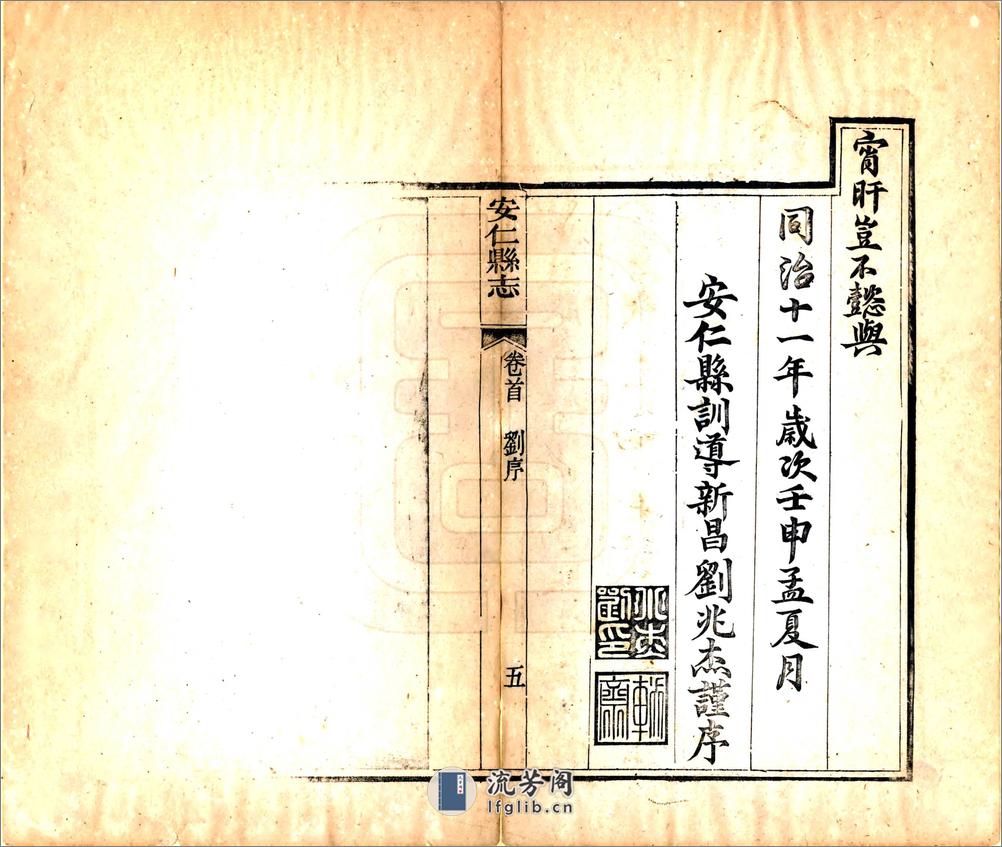 宵旰豈不懿與
同治十一年歲次壬申孟夏月
安仁縣訓導新昌劉兆杰謹序
安仁縣志
卷首
劉序
五
流芳阁
lfglib.cn